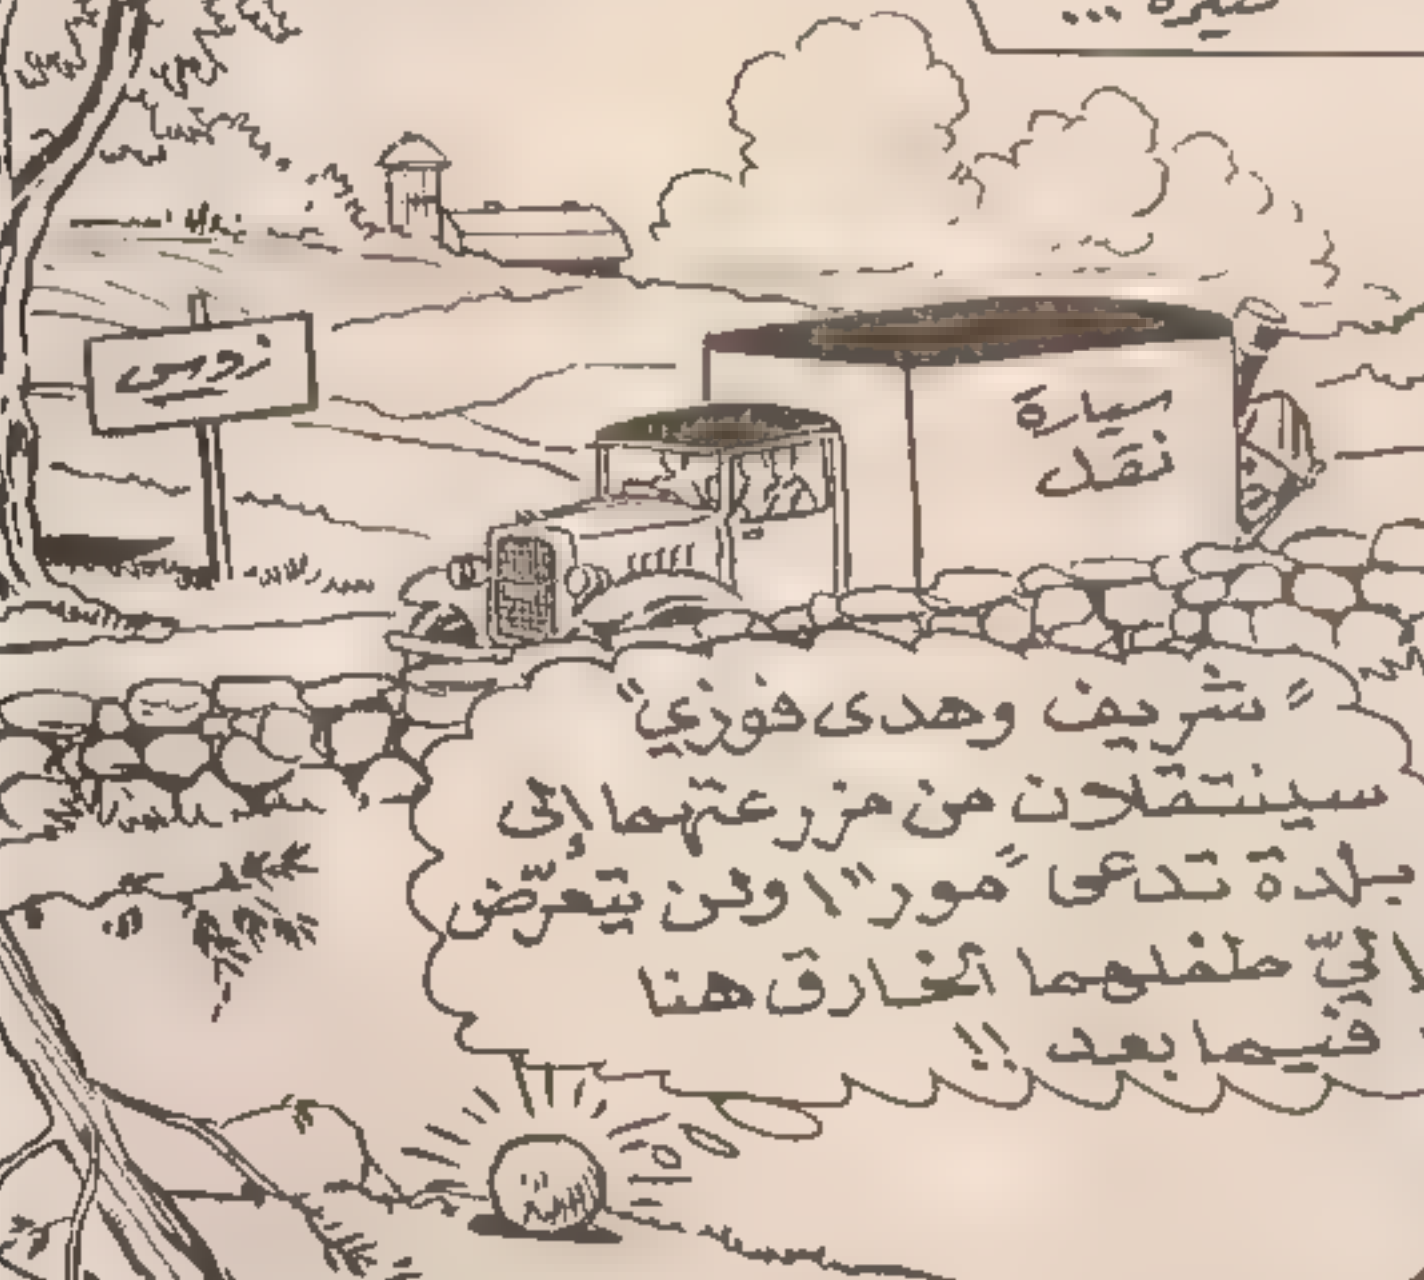 صغيرة ...
زوس
سيارة
نقل
"شريف وهدى فوزي"
سينتقلان من مزرعتهما إلى
بلدة تدعى "مور"! ولن يتعرّض
إليّ طفلهما الخارق هنا
فيما بعد !!